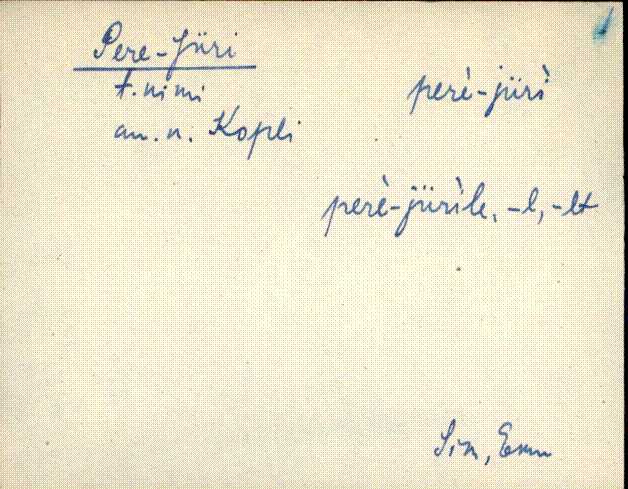 Pere-Jüri
t. nimi
an. n. Kopli
perè-jürì
perè-jürìle, -l, -lt
Sim, Emu